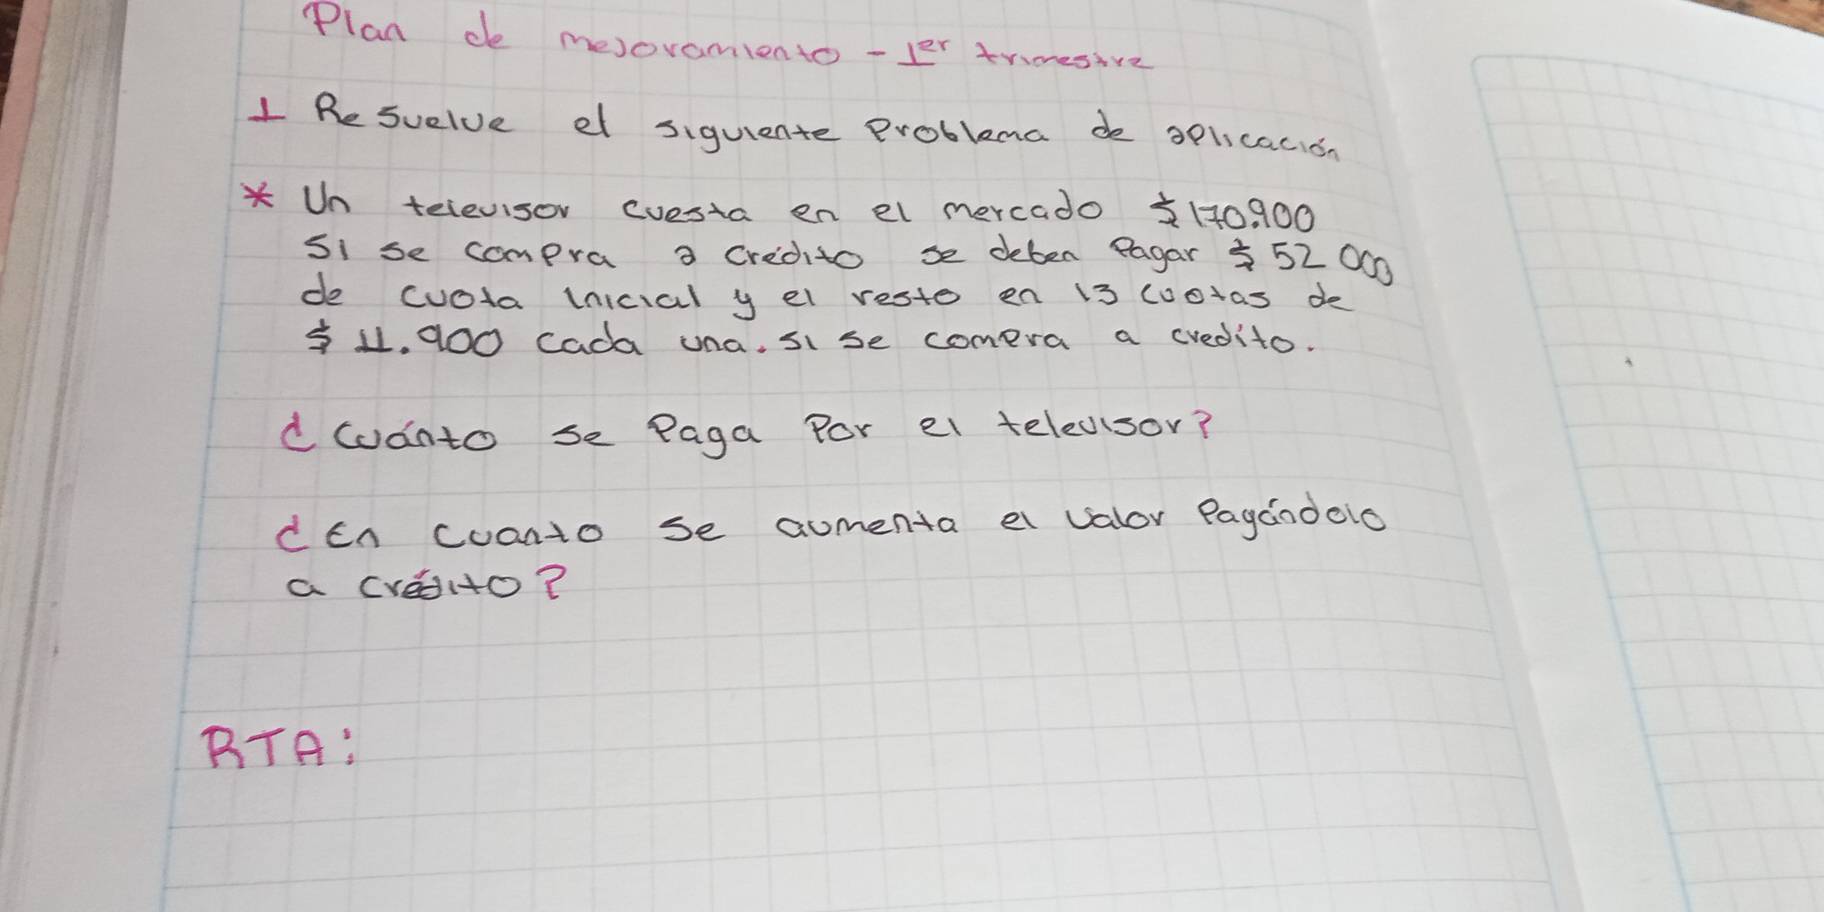 Plan de mejoramiento - 1er trimestre
1 Resuelve el siguiente Problema de aplicación
* Un televisor cuesta en el mercado $170.900
Si se compra a crédito se deben Pagar $52 000
de cuota inicial y el resto en 13 cuotas de
$ 11.900 cada una. si se compra a credito.
¿Cuánto se Paga Por el televisor?
¿En cuanto se aumenta el valor Pagándolo
a crédito?
RTA: